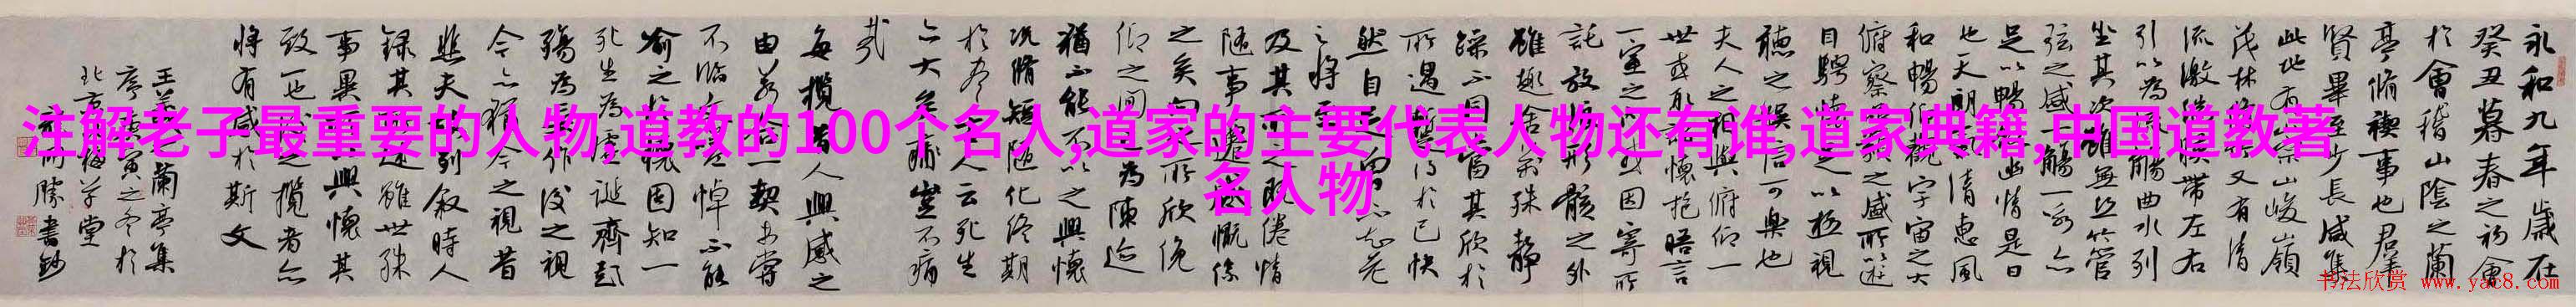 注解老子最重要的人物,道教的100个名人,道家的主要代表人物还有谁,道家典籍,中国道教著
名人物
永和九年歲在
癸丑暮春之初會
於會稽山陰之蘭
亭脩禊事也羣
賢畢至少長咸集
此地有崇山峻嶺
茂林又有清
流激帶左右
引以為觴曲水列
坐其次雖無絲竹管
弦之盛一觴一詠亦
足以暢幽情是日
也天朗清惠風
和暢仰觀宇宙之大
俯察類之盛所以遊
目騁懷足以極視
聽之娛信可樂也
夫人之相與俯仰一
世或取懷抱晤言
一室之或因寄所
託放浪形骸之外
雖趣舍萬殊靜
躁不同當其欣於
所遇暫得於己快
然自足不知老
之將至
及其所之既倦情
隨事遷感慨係
之矣向之所欣俛
仰之間為陳迹
猶不能不以之興懷
況脩短隨化終期
於盡古人云死生
亦大矣豈不痛
哉
每攬昔人興感之
由若合一契未嘗
不臨文嗟悼不能
喻之於懷固知一
死生為虛誕齊彭
殤為妄作後之視
今亦猶今之視昔
悲夫故列敘時人
錄其所述雖世殊
事異興懷其
致一也後之攬者亦
將有感於斯文
王羲之蘭亭集
序庚寅之冬於
北京草堂
勝書鈔
书法欣赏 www.yac8.com